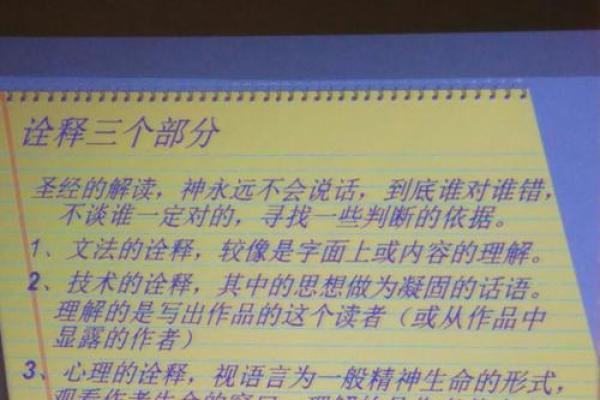 诠释三个部分
圣经的解读，神永远不会说话，到底谁对谁错，
不谈谁一定对的，寻找一些判断的依据。
1、文法的诠释，较像是字面上或内容的理解。
2、技术的诠释，其中的思想做为凝固的话语。
理解的是写出作品的这个读者（或从作品中
显露的作者）
3、心理的诠释，视语言为一般精神生命的形式，